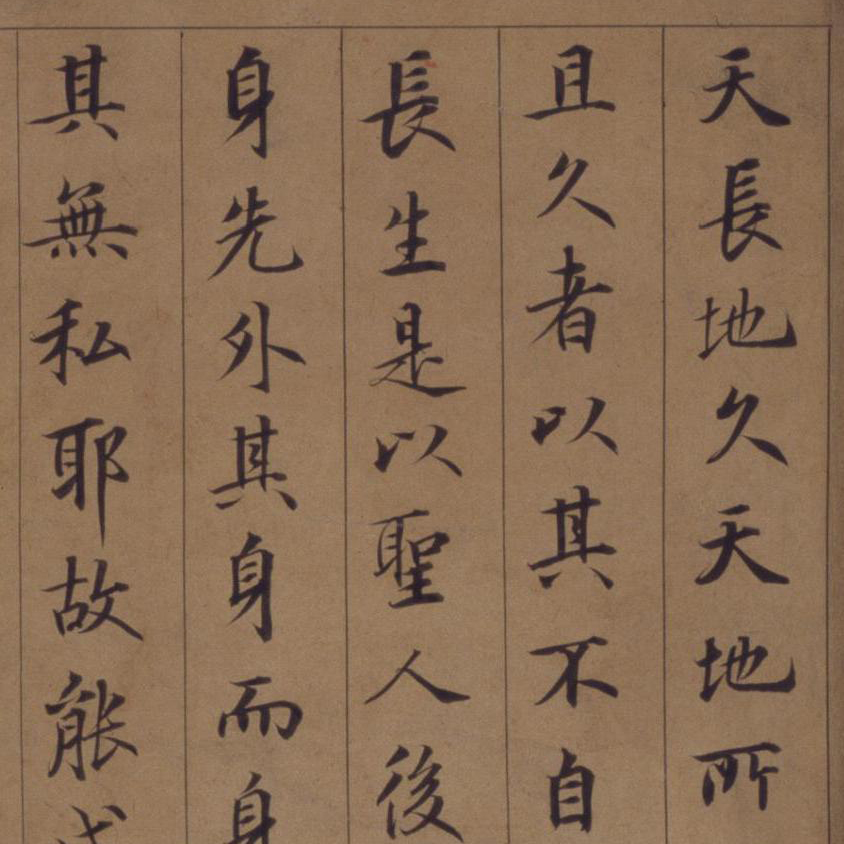 天長地久天地所
且久者以其不自
長生是以聖人後
身先外其身而身
其無私耶故能成